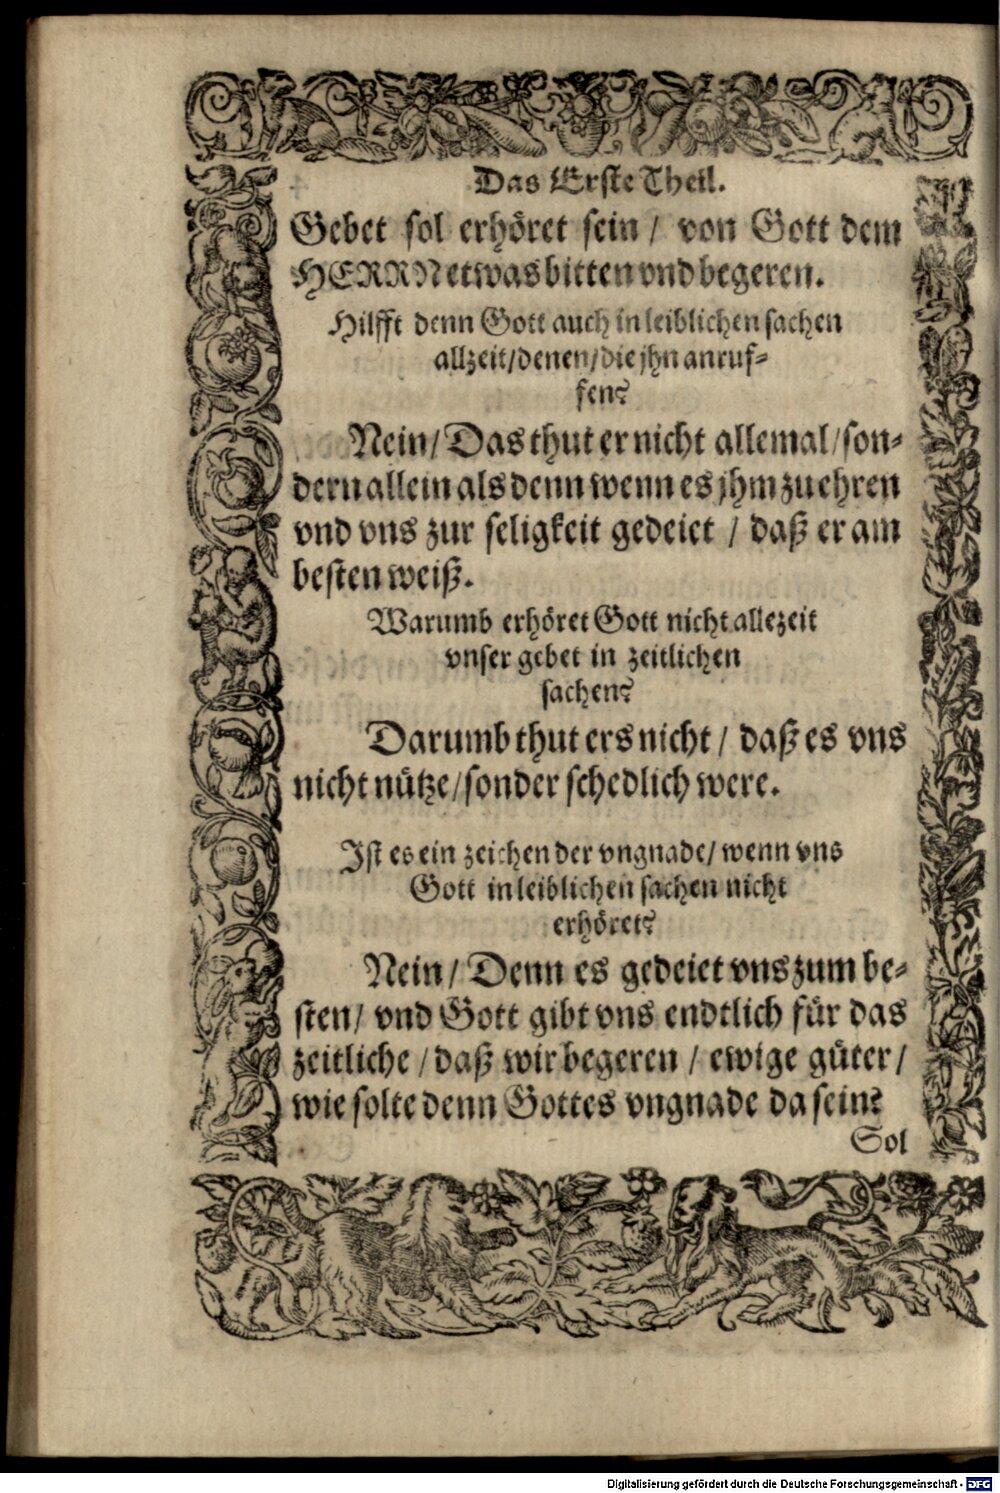 Das Erste Theil.
Gebet sol erhöret sein / von Gott dem
HERRN etwas bitten vnd begeren.
Hilfft denn Gott auch in leiblichen sachen
allzeit / denen / die jhn anruf-
fen?
Nein / Das thut er nicht allemal / son-
dern allein als denn wenn es jhm zu ehren
vnd vns zur seligkeit gedeiet / daß er am
besten weiß.
Warumb erhöret Gott nicht allezeit
vnser gebet in zeitlichen
sachen?
Darumb thut ers nicht / daß es vns
nicht nütze / sonder schedlich were.
Ist es ein zeichen der vngnade / wenn vns
Gott in leiblichen sachen nicht
erhöret?
Nein / Denn es gedeiet vns zum be-
sten / vnd Gott gibt vns endtlich für das
zeitliche / daß wir begeren / ewige güter /
wie solte denn Gottes vngnade da sein?
Sol
Digitalisierung gefördert durch die Deutsche Forschungsgemeinschaft - DFG